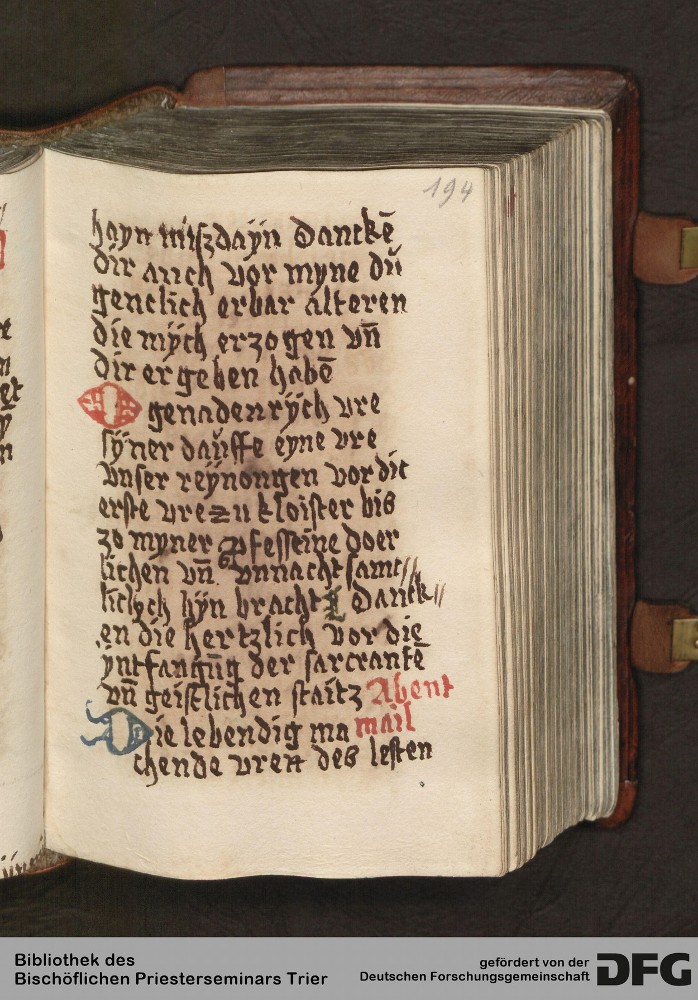 194
hayn miszdayn danckē
dir auch vor myne dü
gentlich erbar alteren
die mych erzogen vn̄
dir ergeben habē
O genadenrÿch vre
sÿner dauffe eyne vre
vnser reÿnongen vor die
erste vre zu kloister bis
zo myner pfesseine doer
lichen vn̄ vnnachtsamt//
liclych hÿn bracht Danck//
en die hertzlich vor die
ÿntfangūg der sarcrantē
vn̄ geistlichen staitz Abent
Die lebendig ma mail
chende vren des lesten
Bibliothek des
Bischöflichen Priesterseminars Trier
gefördert von der
Deutschen Forschungsgemeinschaft DFG